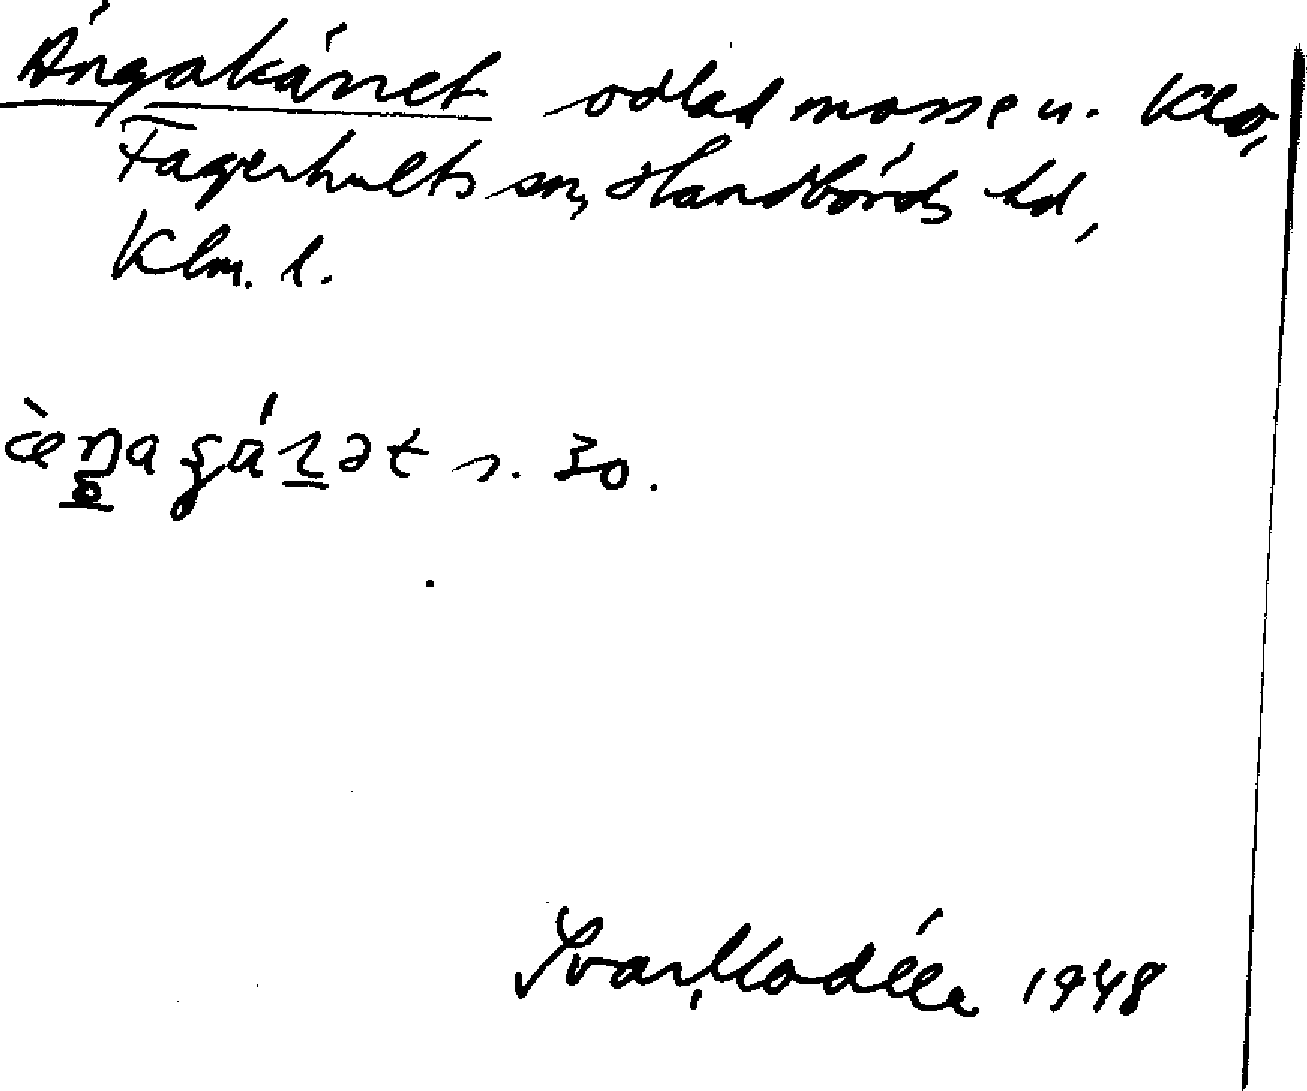 Ängakärret odlad mosse u. Klo,
Fagerhults sn, Handbörds hd,
Klm. l.
s. 30.
Ivar Modéer 1948